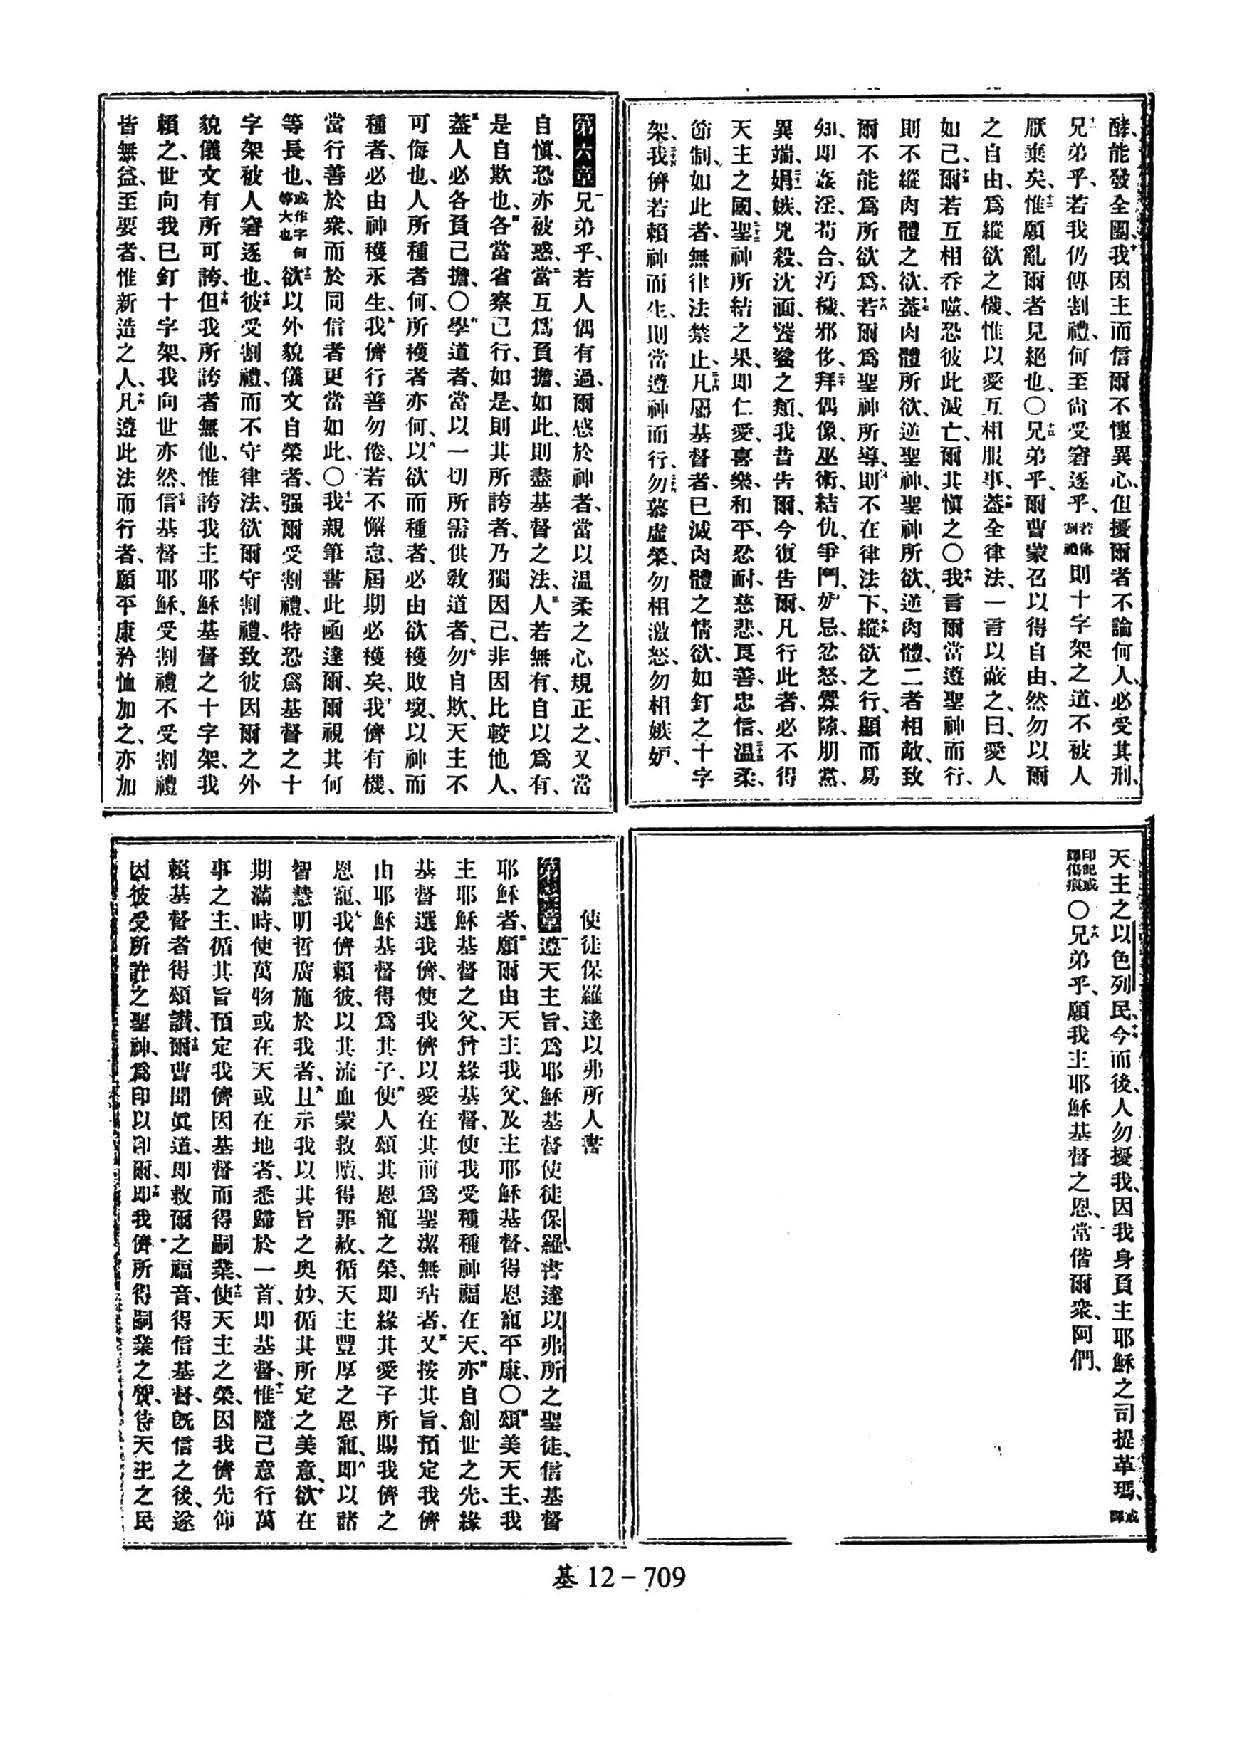 酵、能發全團、十我因主而信爾不懷異心、但擾爾者、不論何人、必受其刑、
十一兄弟乎、若我仍傳割禮、何至尙受窘逐乎、若傳割禮則十字架之道、不被人
厭棄矣、十二惟願亂爾者見絕也、〇十三兄弟乎、爾曹蒙召以得自由、然勿以爾
之自由、爲縱欲之機、惟以愛互相服事、十四蓋全律法、一言以蔽之曰、愛人
如己、十五爾若互相吞噬、恐彼此滅亡、爾其愼之、〇十六我言爾當遵聖神而行、
則不縱肉體之欲、十七蓋肉體所欲、逆聖神、聖神所欲、逆肉體、二者相敵、致
爾不能爲所欲爲、十八若爾爲聖神所導、則不在律法下、十九縱欲之行、顯而易
知、卽姦淫、苟合、汚穢、邪侈、二十拜偶像、巫術、結仇、爭鬥、妒忌、忿怒、釁隙、朋黨、
異端、二十一娼嫉、兇殺、沈湎、饕餮之類、我昔告爾、今復告爾、凡行此者、必不得
天主之國、二十二聖神所結之果、卽仁愛、喜樂、和平、忍耐、慈悲、良善、忠信、二十三溫柔、
節制、如此者、無律法禁止、二十四凡屬基督者、已滅肉體之情欲、如釘之十字
架、二十五我儕若賴神而生、則當遵神而行、二十六勿慕虛榮、勿相激怒、勿相嫉妒、
第六章一兄弟乎、若人偶有過、爾感於神者、當以溫柔之心規正之、又當
自愼、恐亦被惑、二當互爲負擔、如此、則盡基督之法、三人若無有、自以爲有、
是自欺也、四各當省察己行、如是、則其所誇者、乃獨因己、非因比較他人、
五蓋人必各負己擔、〇六學道者、當以一切所需供敎道者、七勿自欺、天主不
可侮也、人所種者何、所穫者亦何、八以欲而種者、必由欲穫敗壞、以神而
種者、必由神穫永生、九我儕行善勿倦、若不懈怠、屆期必穫矣、十我儕有機、
當行善於衆、而於同信者更當如此、〇十一我親筆書此函達爾、爾視其何
等長也、或作字何等大也十二欲以外貌儀文自榮者、强爾受割禮、特恐爲基督之十
字架被人窘逐也、十三彼受割禮、而不守律法、欲爾守割禮、致彼因爾之外
貌儀文有所可誇、十四但我所誇者無他、惟誇我主耶穌基督之十字架、我
賴之、世向我已釘十字架、我向世亦然、十五信基督耶穌、受割禮不受割禮
皆無益、至要者、惟新造之人、十六凡遵此法而行者、願平康矜恤加之、亦加
天主之以色列民、十七今而後、人勿擾我、因我身負主耶穌之司提革瑪、或譯
印記或譯傷痕〇十八兄弟乎、願我主耶穌基督之恩、常偕爾衆、阿們、
使徒保羅達以弗所人書
第一章一遵天主旨、爲耶穌基督使徒保羅、書達以弗所之聖徒、信基督
耶穌者、二願爾由天主我父、及主耶穌基督、得恩寵平康、〇三頌美天主、我
主耶穌基督之父、彼緣基督、使我受種種神福在天、四亦自創世之先、緣
基督選我儕、使我儕以愛在其前爲聖潔無玷者、五又按其旨、預定我儕
由耶穌基督得爲其子、六使人頌其恩寵之榮、卽緣其愛子所賜我儕之
恩寵、七我儕賴彼、以其流血蒙救贖、得罪赦、循天主豐厚之恩寵、八卽以諸
智慧明哲廣施於我者、九且示我以其旨之奧妙、循其所定之美意、十欲在
期滿時、使萬物或在天或在地者、悉歸於一首、卽基督、十一惟隨己意行萬
事之主、循其旨預定我儕因基督而得嗣業、十二使天主之榮、因我儕先仰
賴基督者得頌讚、十三爾曹聞眞道、卽救爾之福音、得信基督、旣信之後、遂
因彼受所許之聖神、爲印以印爾、十四卽我儕所得嗣業之質、待天主之民
基12-709